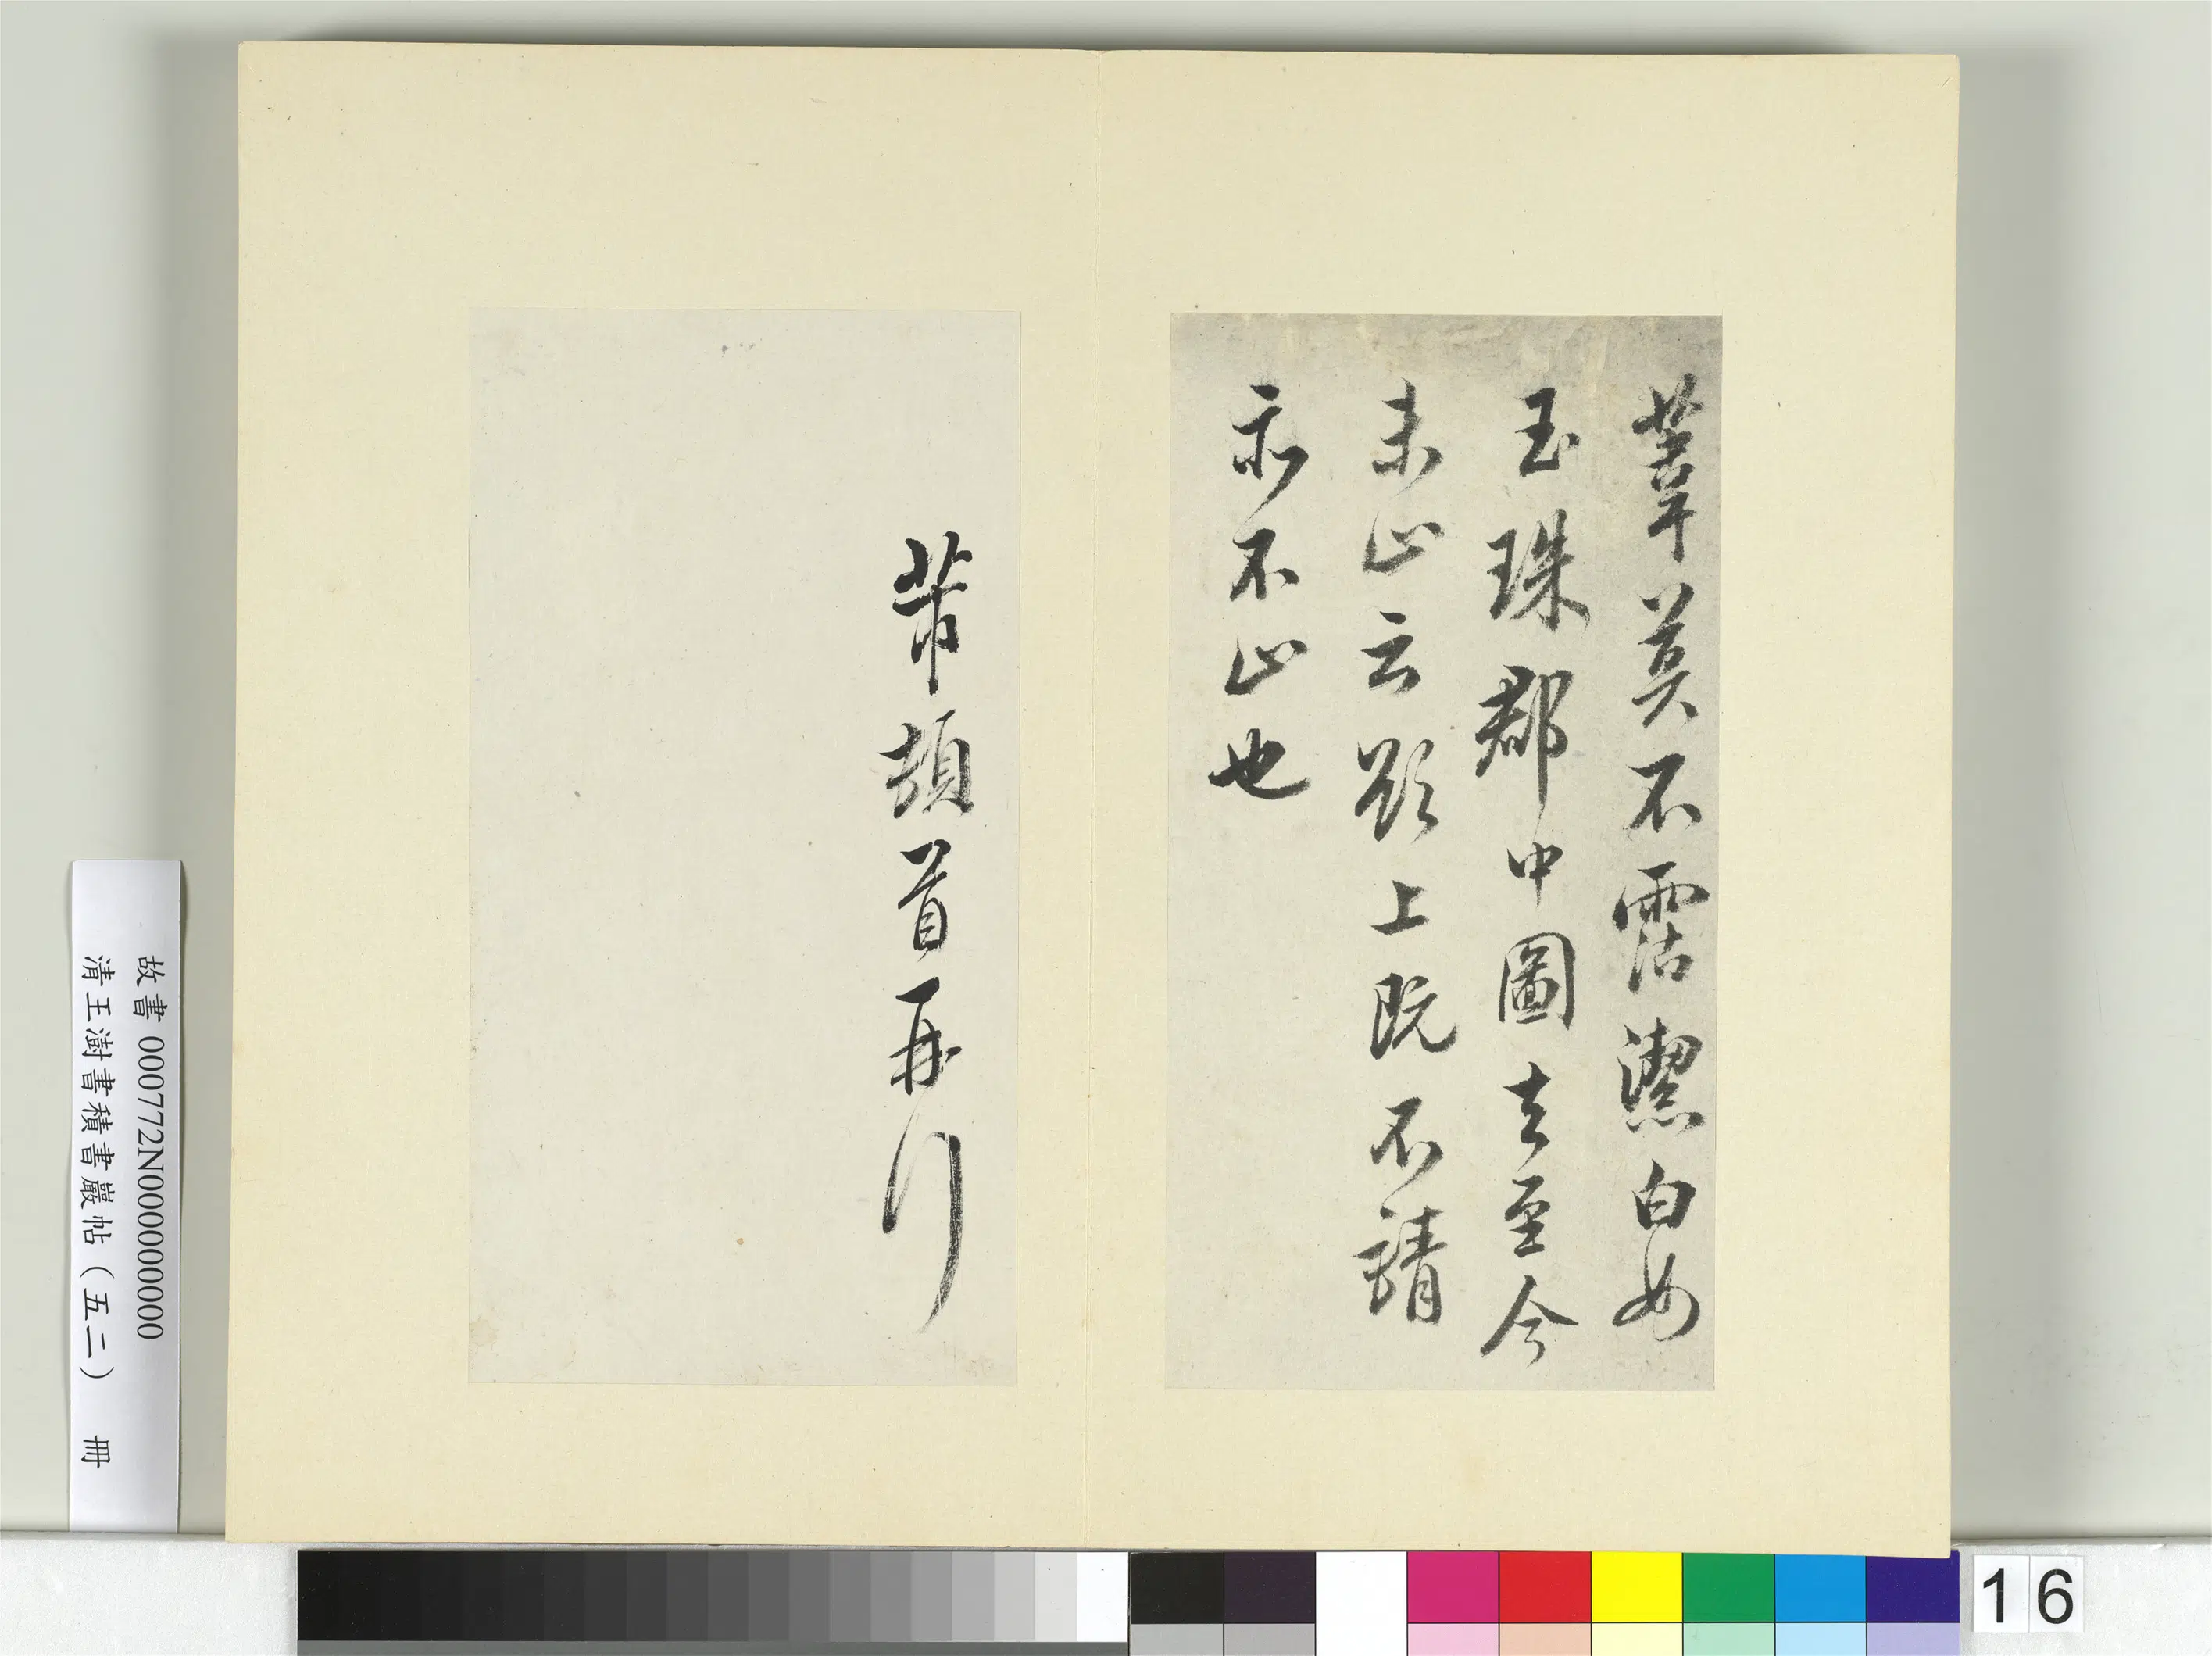 葦莫不霑潔白如
玉珠郡中圖去至今
未止云欲上既不請
亦不止也
芾頓首再行
故書 000772N000000000
清王澍書積書巖帖（五二） 冊
16